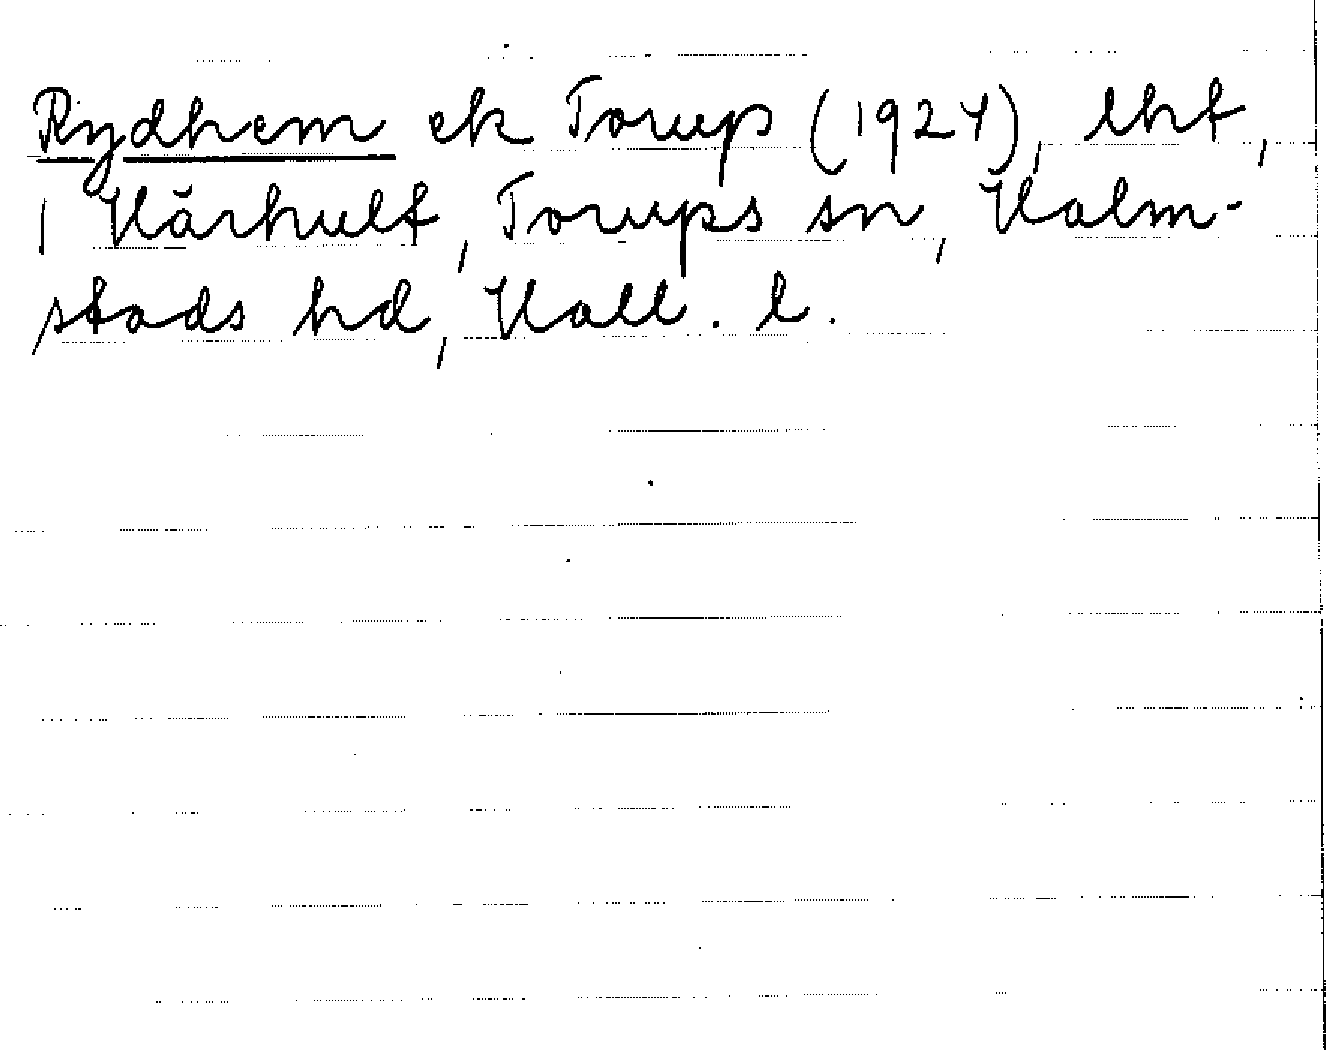 Rydhem ek Torup (1924), lht,
1 Hårhult, Torups sn, Halm-
stads hd, Hall. l.